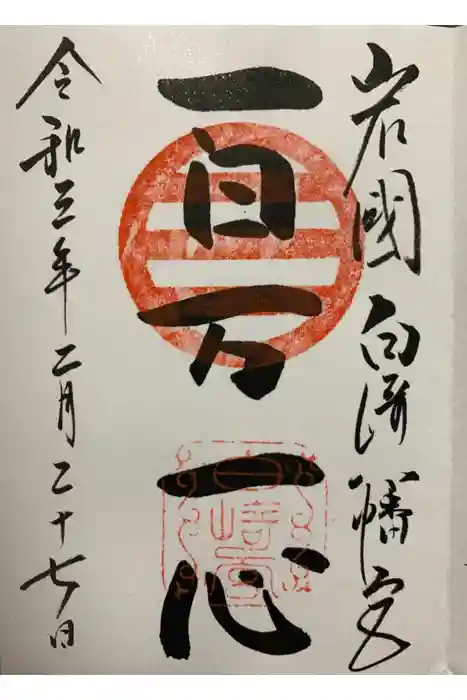 岩國白崎八幡宮
百万一心
令和三年二月二十七日